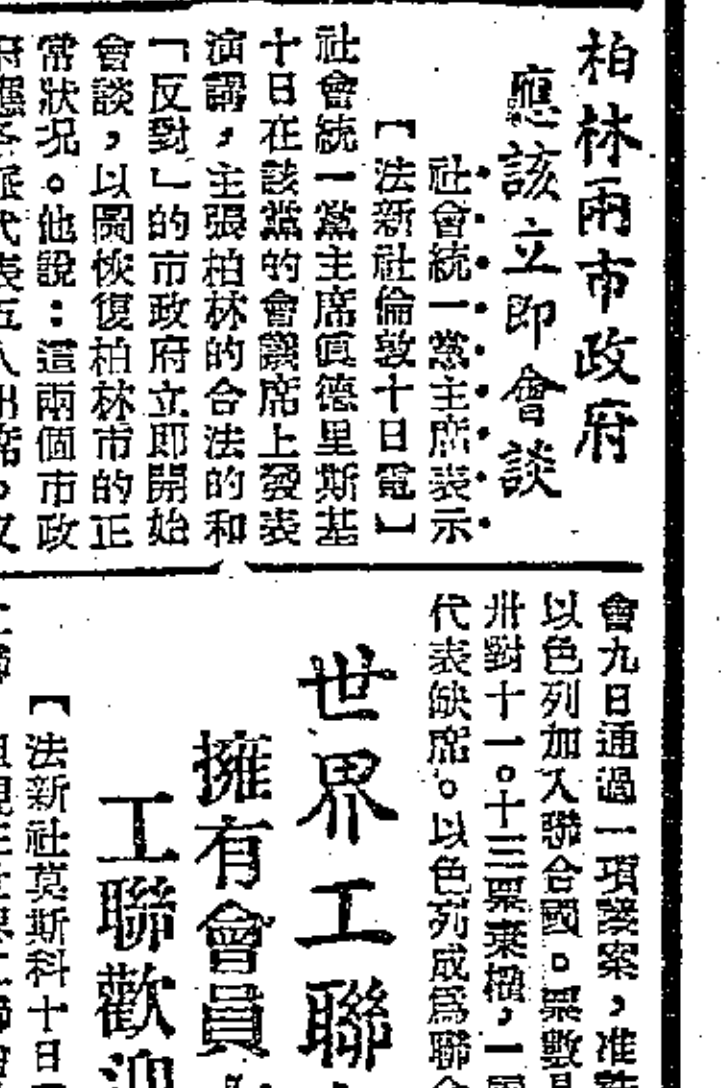 柏林兩市政府
應該立即會談
社會統一黨主席表示
【法新社倫敦十日電】
社會統一黨主席眞德里斯基
十日在該黨的會議席上發表
演講，主張柏林的合法的和
「反對」的市政府立即開始
會談，以圖恢復柏林市的正
常狀况。他說：這兩個市政
會九日通過一項議案，准許
以色列加入聯合國。票數是
卅對十一。十三票棄權，一國
代表缺席。以色列成爲聯合
世界工聯
擁有會員
工聯歡迎
【法新社莫斯科十日